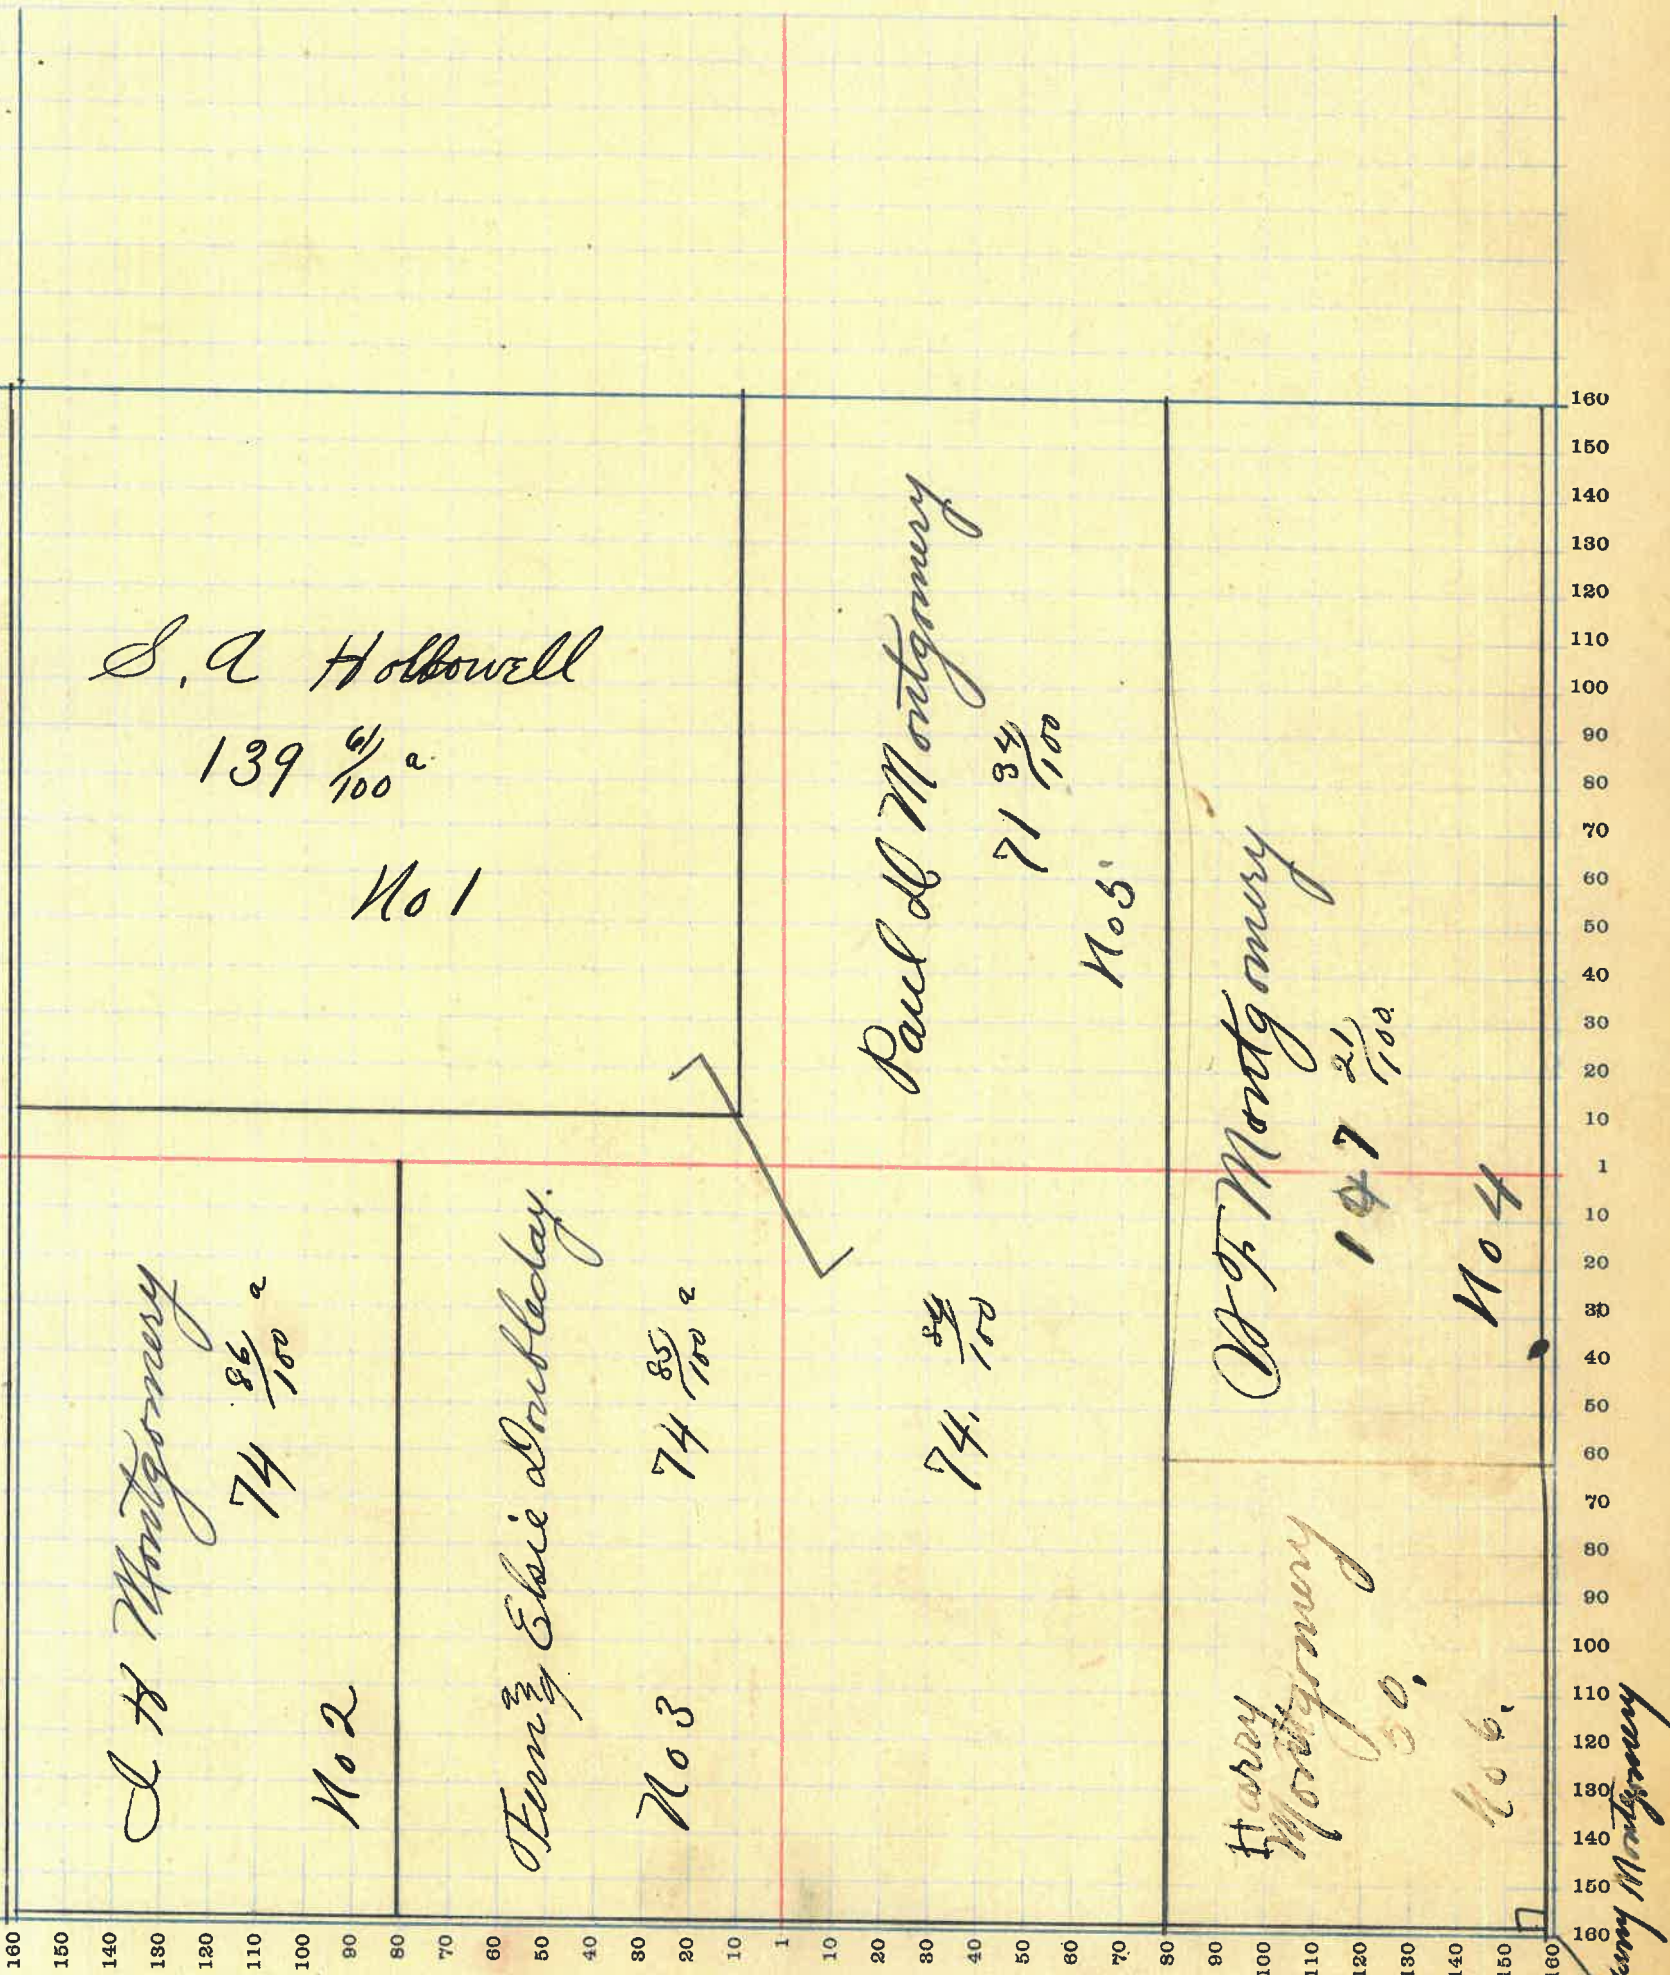 S. A Hollowell
139 61/100 a.
No 1
Paul H Montgomery
71 34/100
No 5
I H Montgomery
74 86/100 a
No 2
Fern and Elsie Doubleday.
74 85/100 a
No 3
74. 84/100
W F Montgomery
147 21/100
No 4
Harry
Montgomery
50.
No 6.
Montgomery
160
150
140
130
120
110
100
90
80
70
60
50
40
30
20
10
1
10
20
30
40
50
60
70
80
90
100
110
120
130
140
150
160
160 150 140 130 120 110 100 90 80 70 60 50 40 30 20 10 1 10 20 30 40 50 60 70 80 90 100 110 120 130 140 150 160